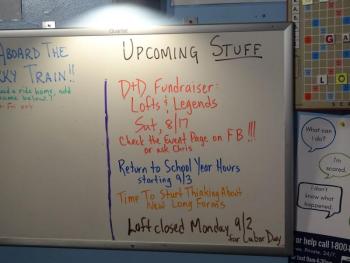 Quartet
ABOARD THE
KY TRAIN!!
need a ride home, add
name below!
UPCOMING STUFF
D+D Fundraiser:
Lofts & Legends
Sat, 8/17
Check the Event Page on FB!!!
or ask Chris
Return to School Year Hours
starting 9/3
Time To Start Thinking About
New Long Forms
Loft closed Monday, 9/2
for Labor Day
What can
I do?
I'm
scared.
I don't
know what
happened.
or help call 1-800-